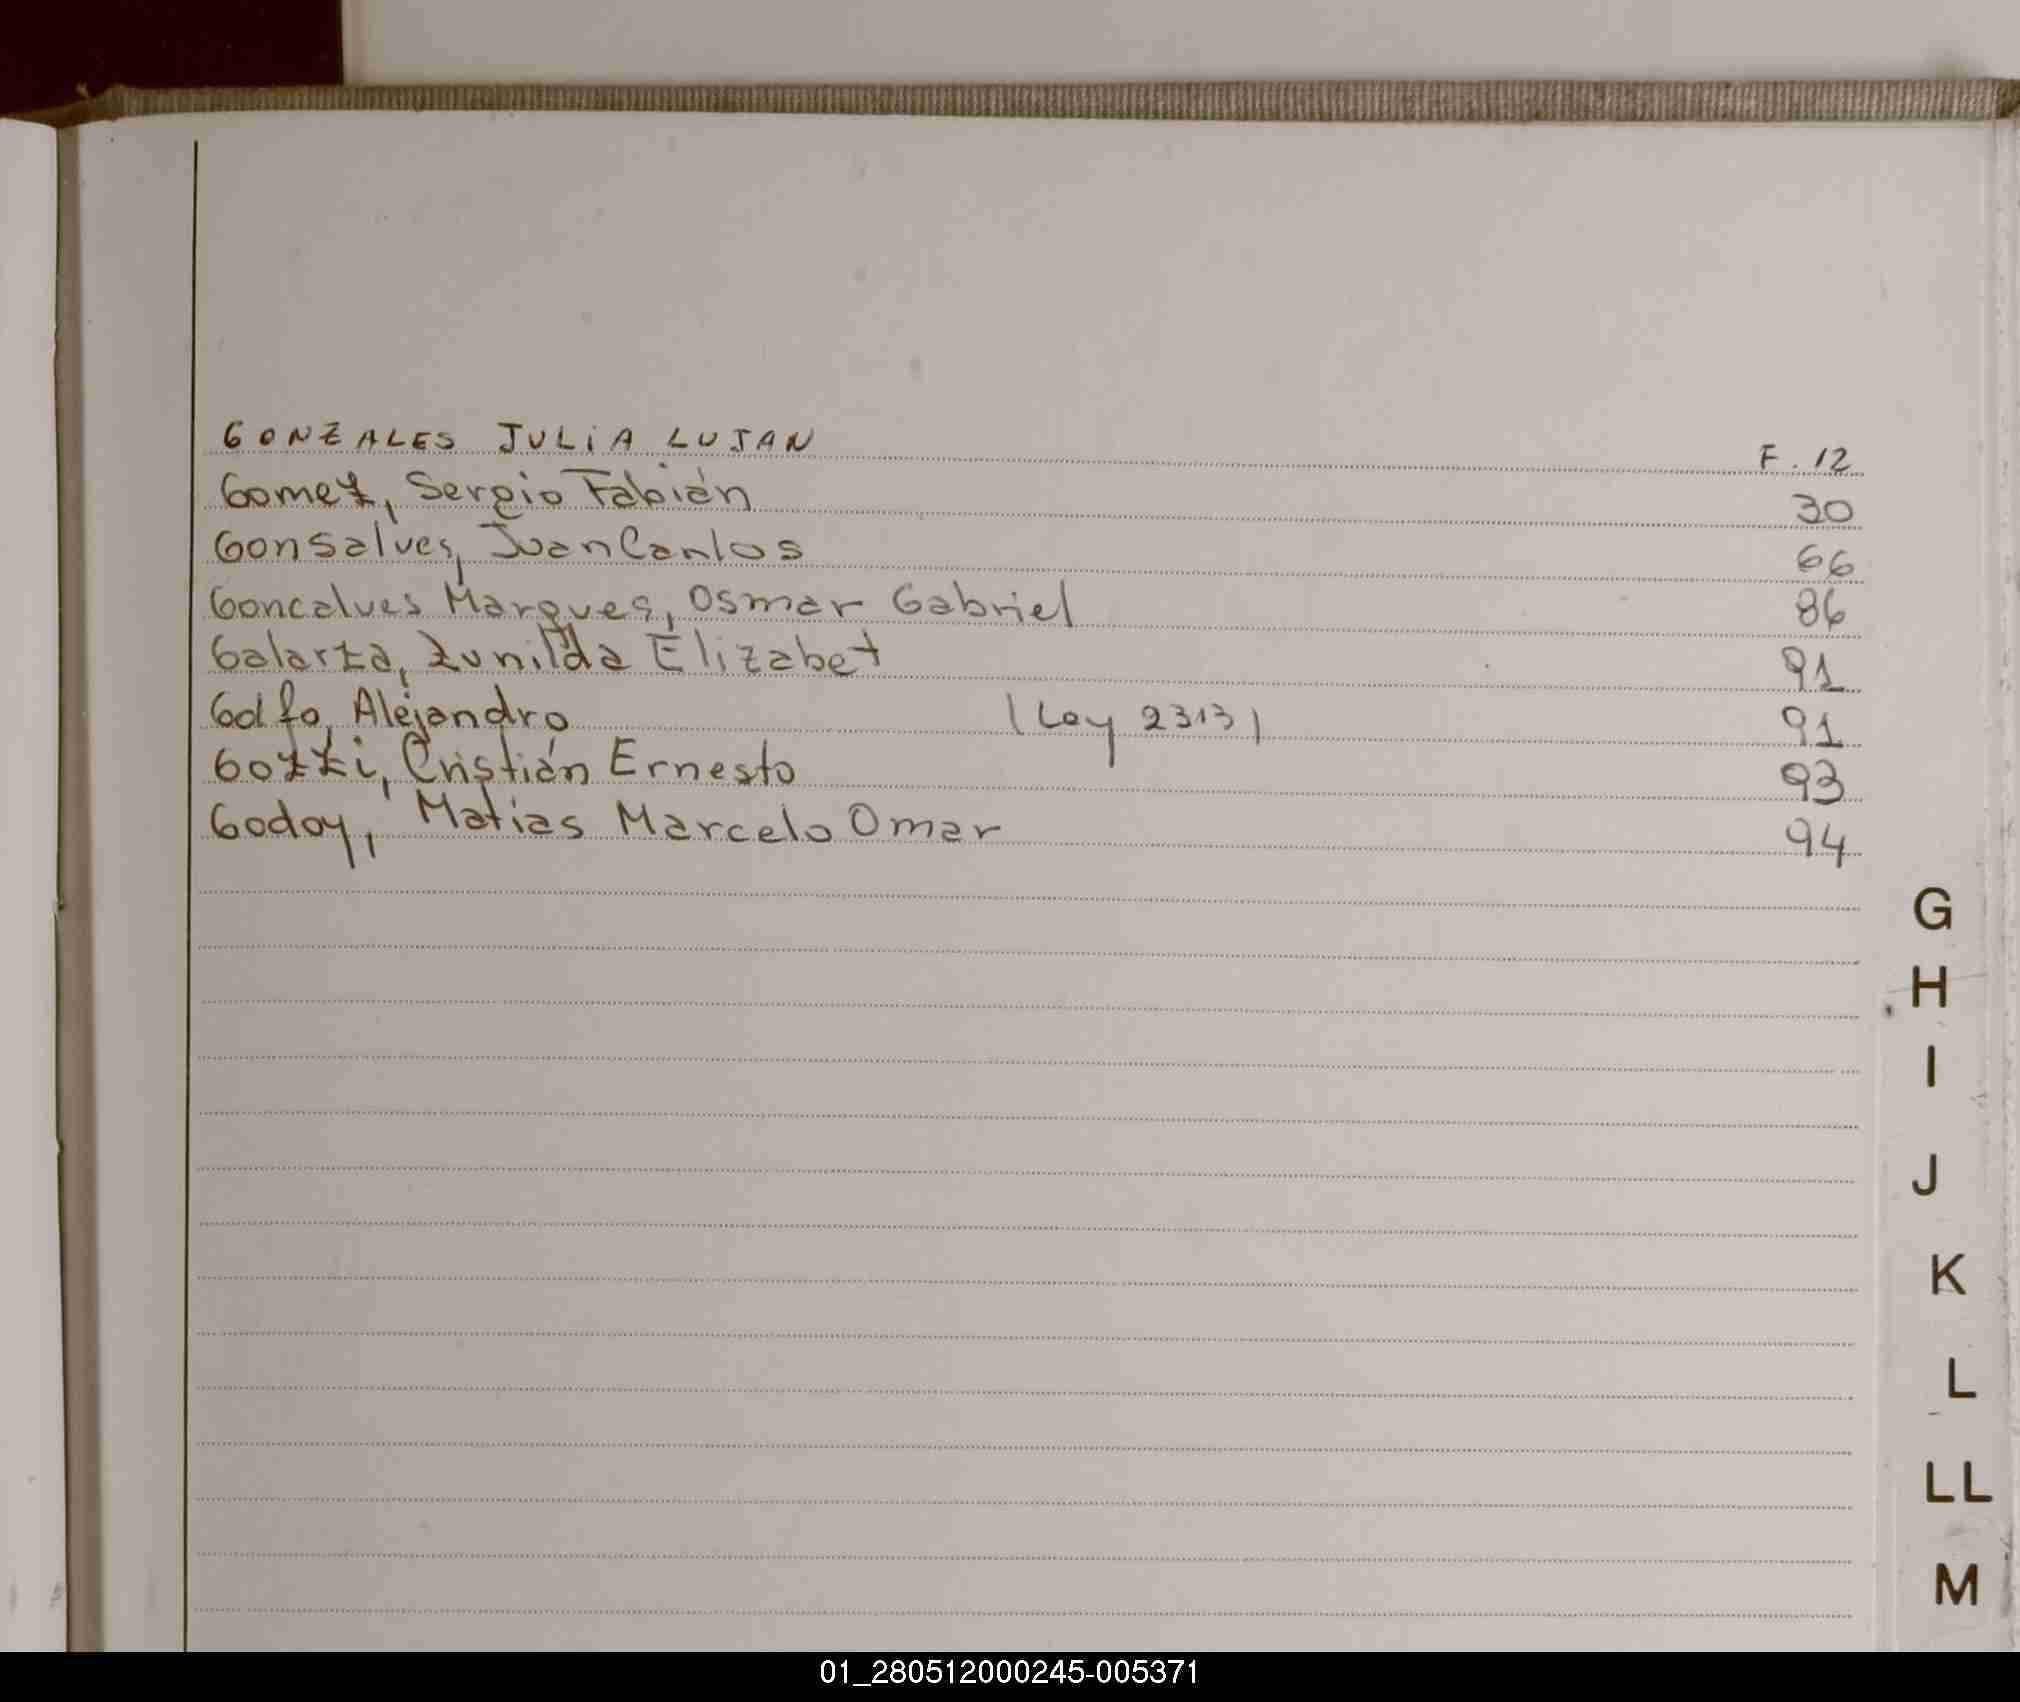 GONZALES JULIA LUJAN F. 12
Gomez, Sergio Fabián 30
Gonsalves, Juan Carlos 66
Goncalves Marques, Osmar Gabriel 86
Galarza, Zunilda Elizabet 91
Golfo, Alejandro (Ley 2313) 91
Gozzi, Cristián Ernesto 93
Godoy, Matias Marcelo Omar 94
G
H
I
J
K
L
LL
M
01_280512000245-005371